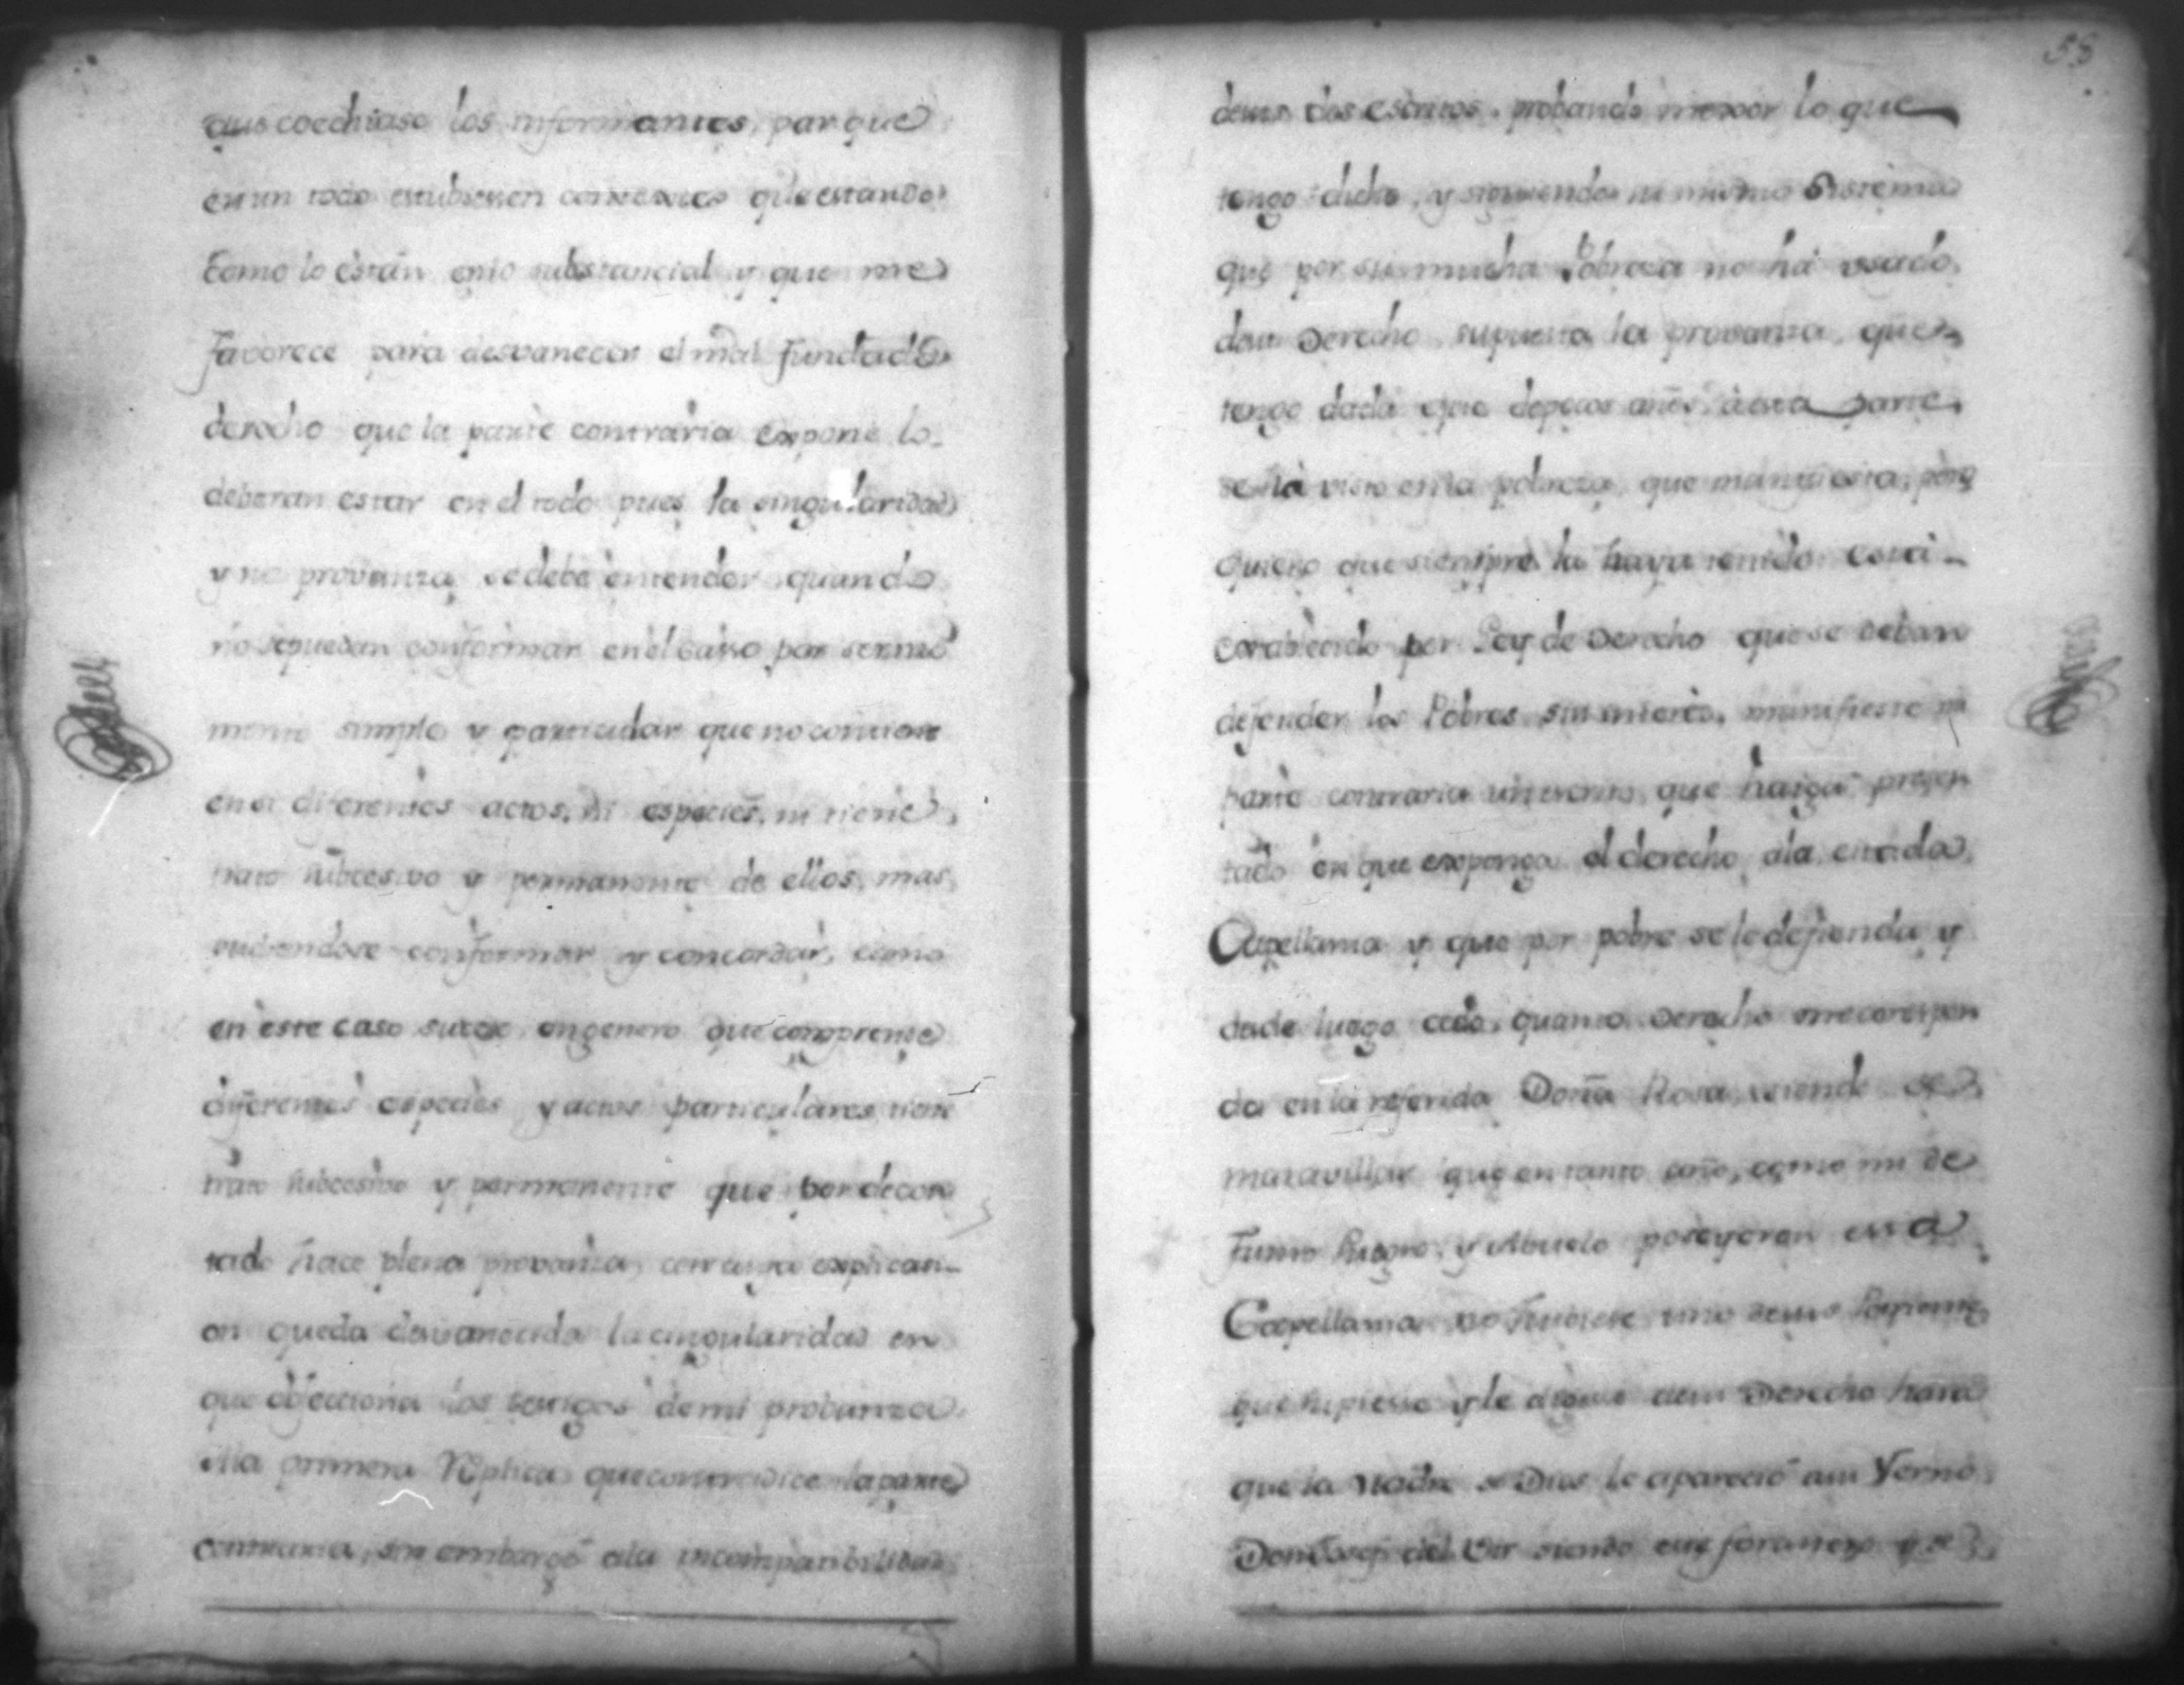 que coechase los informantes, par que
en un todo estubiesen contextes que estando
como lo están en lo substancial y que me
favorece para desvanecer el mal fundado
derecho que la parte contraria expone lo
deberan estar en el todo pues la singularidad
y no provanza, se debe entender quando
no se puedan conformar en el caso por ser
mento simple y particular que no contiene
en si diferentes actos, ni especies, ni tiene
trato subcesivo y permanente de ellos, mas
pudiendose conformar y concordar, como
en este caso sucede en genero que comprende
diferentes especies y actos particulares tiene
trato subcesivo y permanente que por decon
tado hace plena provanza, con cuya explicaci-
on queda desvanecida la singularidad en
que objecciona los testigos de mi probanza.
A la primera Replica que contradice la parte
contraria, sin embargo a la incompatibilidad
58
de sus dos escritos, probando mexor lo que
tengo dicho, y siguiendo su mismo Sistema
que por su mucha Pobreza no ha usado
de su Derecho, supuesta la provanza, que
tengo dada que de pocos años a esta parte
se ha visto en la pobreza, que manifiesta, porq
quiero que siempre la haya tenido está
establecido por Ley de Derecho que se deban
defender los Pobres sin interés, manifieste
parte contraria un escrito, que haiga presen
tado en que exponga el derecho a la citada
Capellania y que por pobre se le defienda y
desde luego cedo, quanto derecho me corespon
da en la referida Doña Rosa, siendo de
maravillar que en tanto año, como mi de
funto Suegro, y Abuelo poseyeron esta
Capellania no huviese uno de sus Parientes
que supiesse y le dixesse de su Derecho hasta
que la Madre de Dios le apareció a su Yerno
Don Josef del siendo este foraneo y se